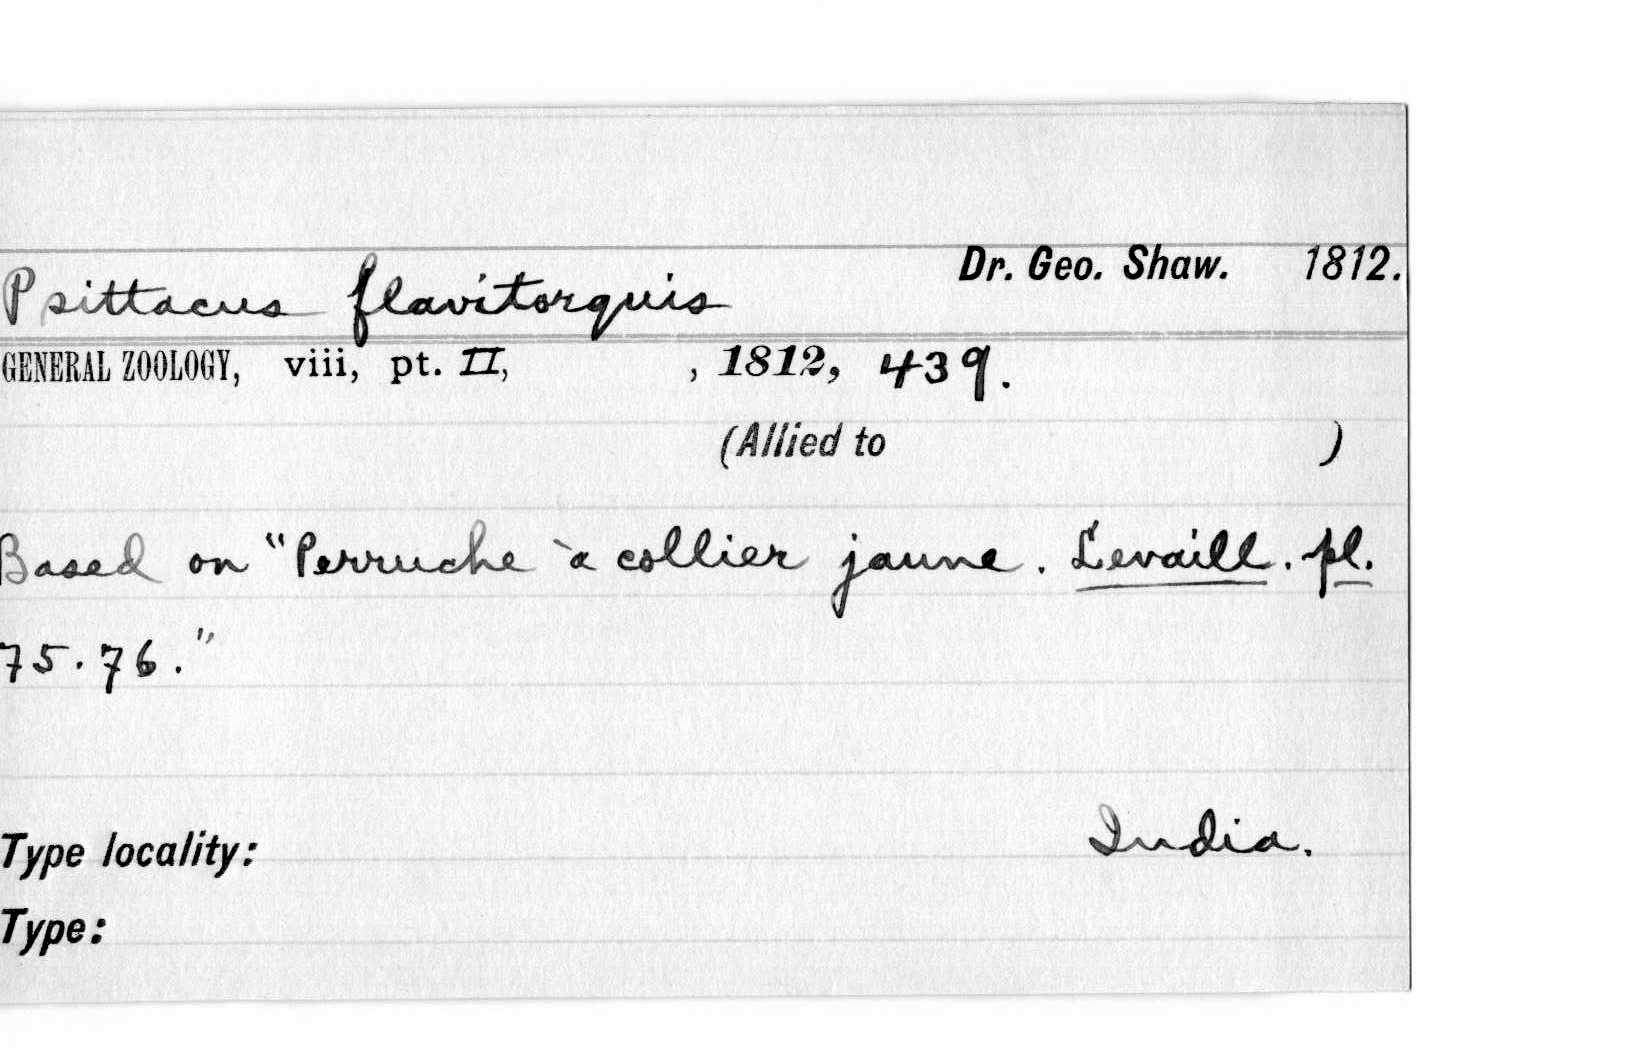 Dr. Geo. Shaw. 1812.
Psittacus flavitorquis
GENERAL ZOOLOGY, viii, pt. II, , 1812, 439.
(Allied to )
Based on "Perruche à collier jaune. Levaill. pl.
75.76."
Type locality: India.
Type: